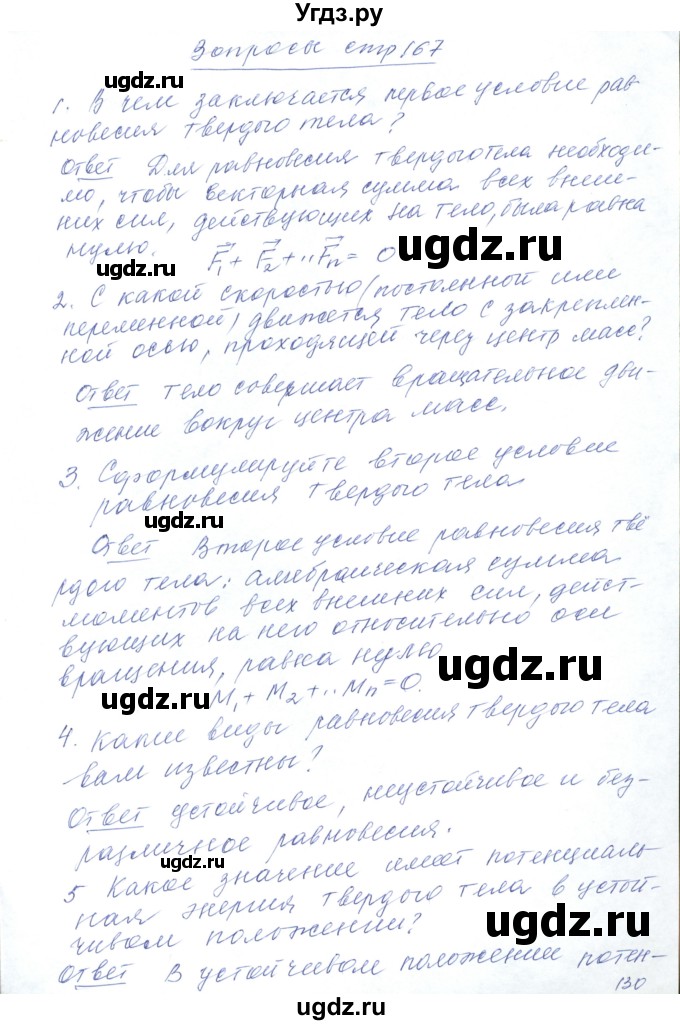 Угдз.ру
Вопросы стр 167
1. В чем заключается первое условие рав-
новесия твердого тела?
Ответ Для равновесия твердого тела необходи-
мо, чтобы векторная сумма всех внеш-
них сил, действующих на тело, была равна
нулю. F₁ + F₂ + .. Fn = 0
2. С какой скоростью (постоянной или
переменной) движется тело с закреплен-
ной осью, проходящей через центр масс?
Ответ тело совершает вращательное дви-
жение вокруг центра масс.
3. Сформулируйте второе условие
равновесия твердого тела
Ответ Второе условие равновесия твё
рдого тела: алгебраическая сумма
моментов всех внешних сил, дейст-
вующих на него относительно оси
вращения, равна нулю
M₁ + M₂ + .. Mn = 0.
4. Какие виды равновесия твердого тела
вам известны?
Ответ устойчивое, неустойчивое и без-
различное равновесия.
5 Какое значение имеет потенциаль-
ная энергия твердого тела в устой-
чивом положении?
Ответ В устойчивом положении потен-
130
ugdz.ru
ugdz.ru
ugdz.ru
ugdz.ru
ugdz.ru
ugdz.ru
ugdz.ru
ugdz.ru
ugdz.ru
ugdz.ru
ugdz.ru
ugdz.ru
ugdz.ru